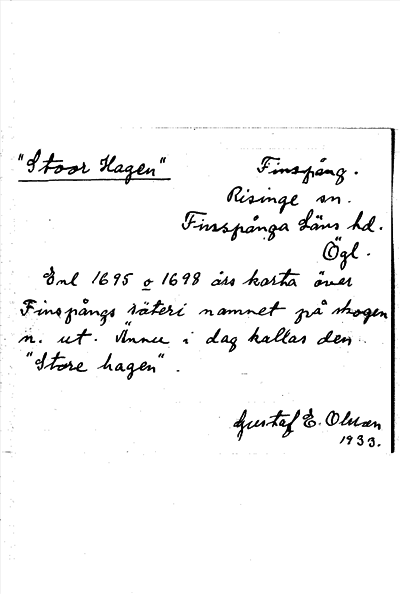 "Stoor Hagen"
Finspång.
Risinge sn.
Finspånga Läns hd.
Ögl.
Enl 1695 o 1698 års karta över
Finspångs säteri namnet på skogen
n. ut. Ännu i dag kallas den
"Store hagen".
Gustaf E. Olsson
1933.